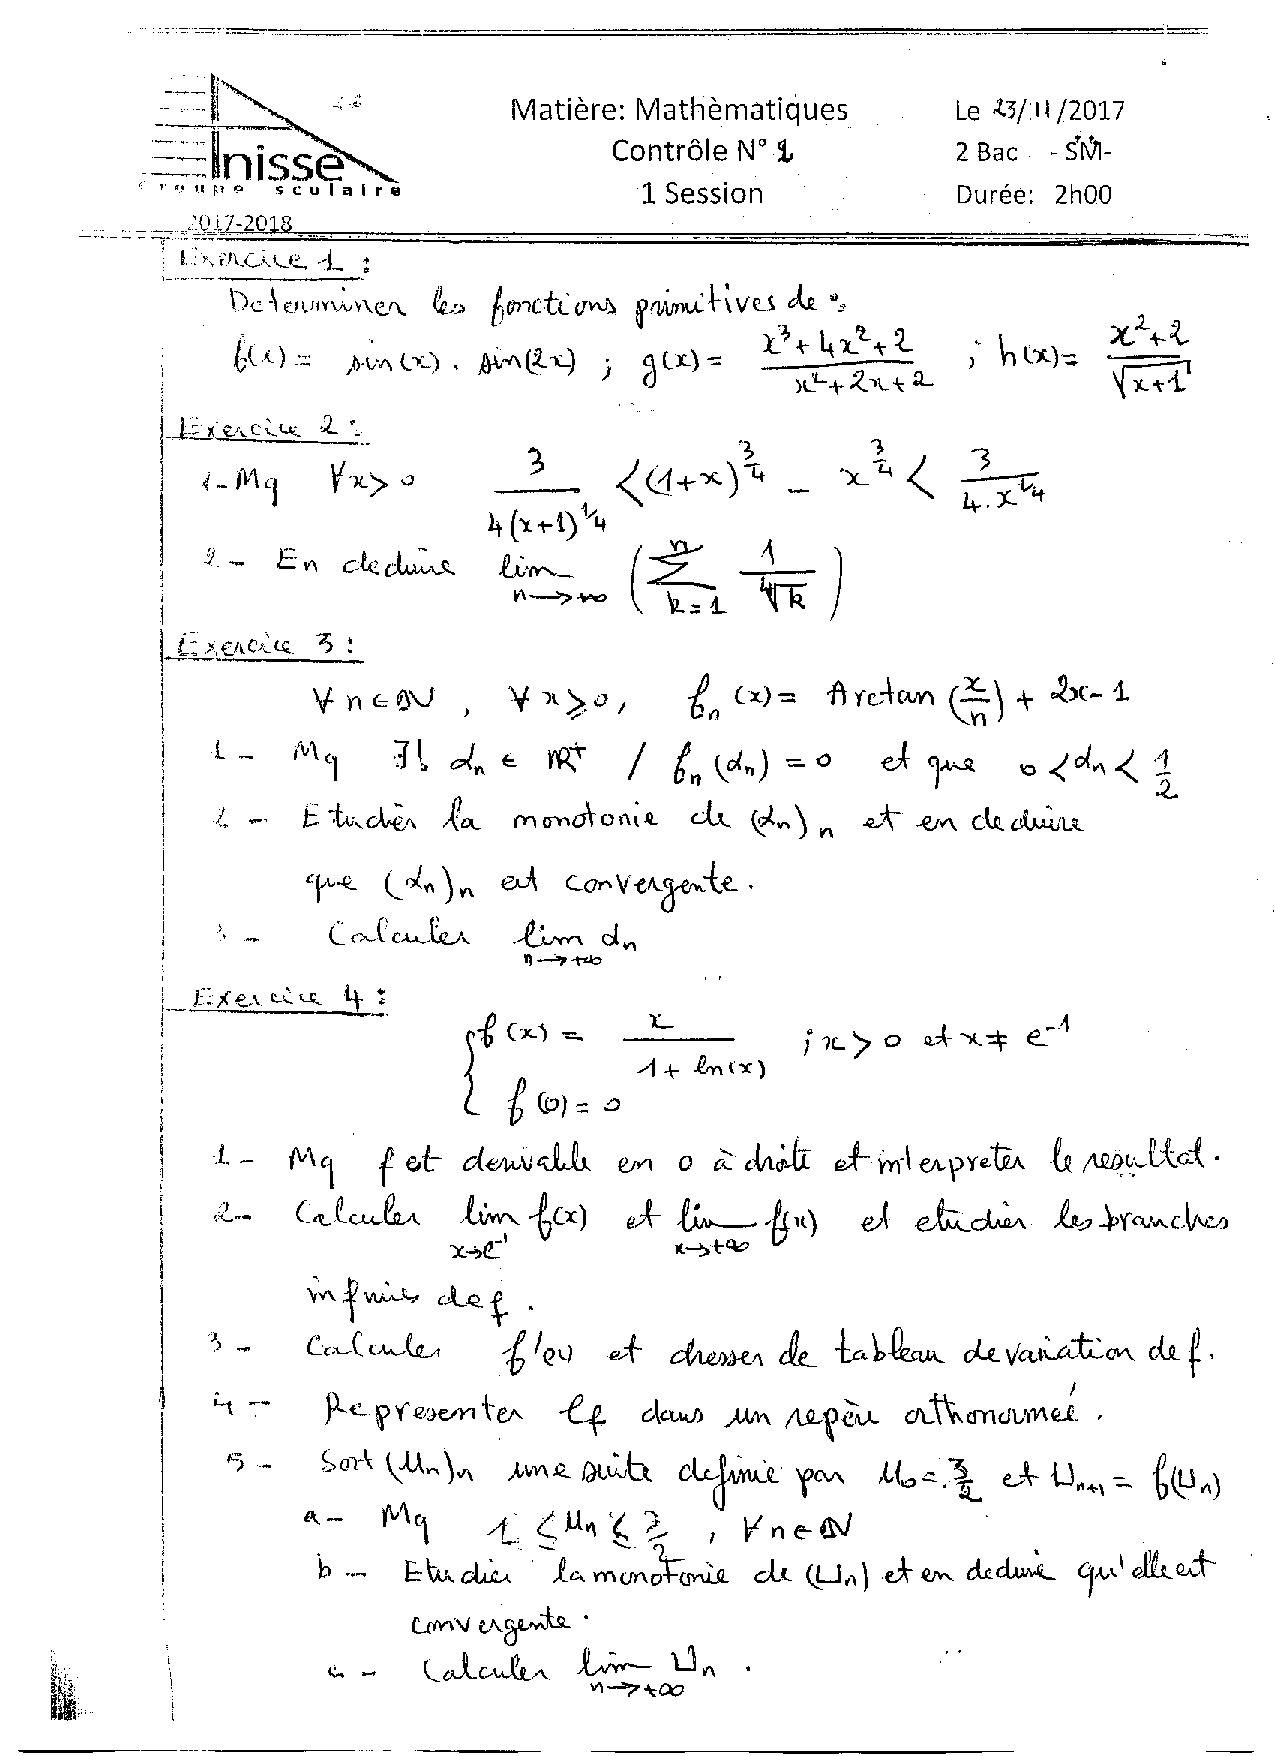 Inisse
Groupe sculaire
2017-2018
Matière: Mathèmatiques
Contrôle N° 1
1 Session
Le 23/11/2017
2 Bac - SM-
Durée: 2h00
Exercice 1 :
Determiner les fonctions primitives de :
f(x) = sin(x) . sin(2x) ; g(x) = (x³ + 4x² + 2)/(x² + 2x + 2) ; h(x) = (x² + 2)/√(x+1)
Exercice 2 :
1- Mq ∀x > 0 3/(4(x+1)^(1/4)) < (1+x)^(3/4) - x^(3/4) < 3/(4.x^(1/4))
2 - En deduire lim n→+∞ (∑ k=1 n 1/⁴√k)
Exercice 3 :
∀ n ∈ IN , ∀ x ⩾ 0, f_n (x) = Arctan (x/n) + 2x - 1
1 - Mq ∃! α_n ∈ IR⁺ / f_n (α_n) = 0 et que 0 < α_n < 1/2
2 - Etudièr la monotonie de (α_n)_n et en deduire
que (α_n)_n est convergente .
3 - Calculer lim n→+∞ α_n
Exercice 4 :
{ f(x) = x/(1 + ln(x)) ; x > 0 et x ≠ e^-1
f(0) = 0
1 - Mq f et derivable en 0 à droite et interpreter le resultat .
2 - Calculer lim x→e^-1 f(x) et lim x→+∞ f(x) et etudier les branches
infinies de f .
3 - Calculer f'(x) et dresser de tableau de variation de f .
4 - Representer Cf dans un repère orthonormeé .
5 - Soit (U_n)_n une suite definie par U_0 = 3/2 et U_n+1 = f(U_n)
a - Mq 1 ⩽ U_n ⩽ 3/2 , ∀ n ∈ IN
b - Etudier la monotonie de (U_n) et en deduire qu'elle est
convergente .
c - Calculer lim n→+∞ U_n .